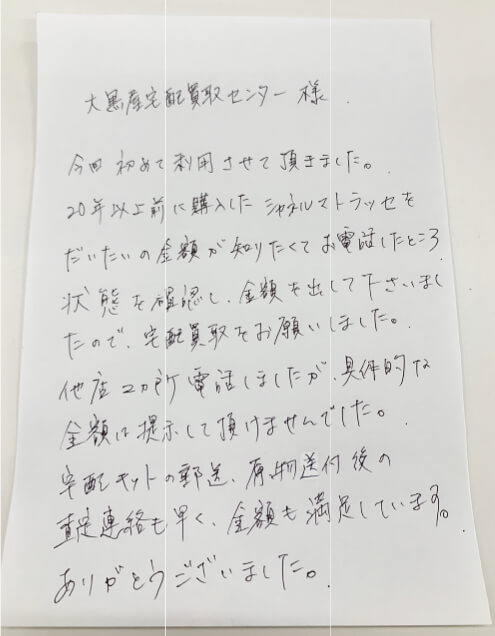 大黒屋宅配買取センター 様
今回 初めて利用させて頂きました。
20年以上前に購入した シャネルマトラッセを
だいたいの金額が知りたくてお電話したところ
状態を確認し、金額を出して下さいまし
たので、宅配買取をお願いしました。
他店2カ所電話しましたが、具体的な
金額は提示して頂けませんでした。
宅配キットの郵送、荷物送付後の
査定連絡も早く、金額も満足しています。
ありがとうございました。